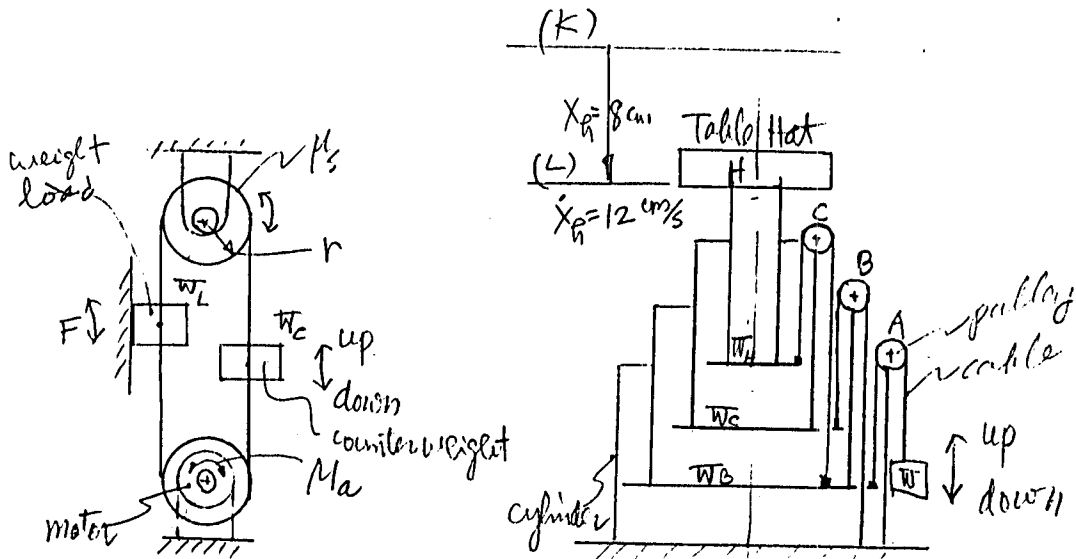 weight
load
μs
r
W_L
F
W_C
up
down
counterweight
Ma
motor
(K)
X_h = 8 cm
Table Hat
(L)
H
Ẋ_h = 12 cm/s
C
B
A
pulley
cable
W_C
W_B
W
up
down
cylinder